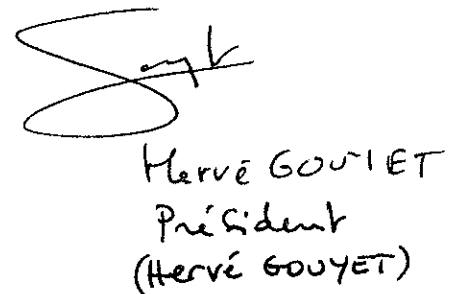 Hervé GOUYET
Président
(Hervé GOUYET)